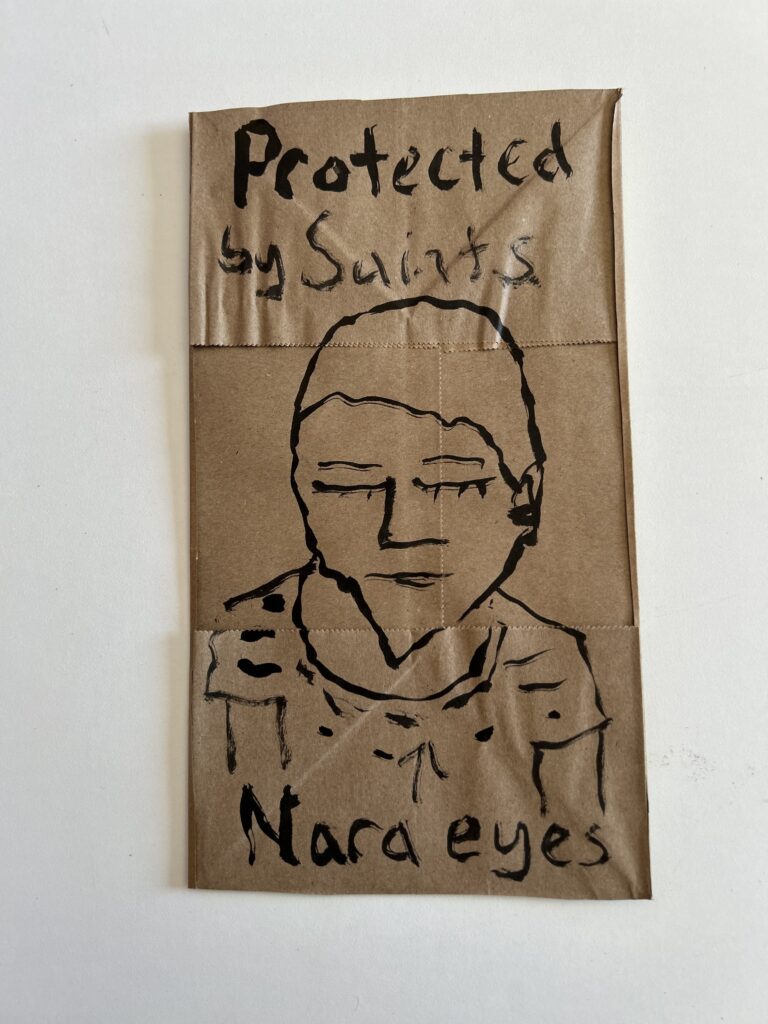 Protected
by Saints
Nara eyes